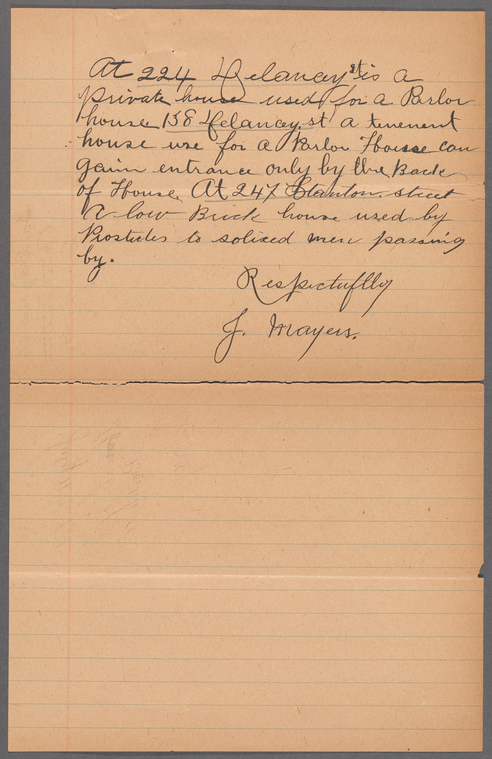 At 224 Delancey st is a
private house used for a Parlor
house 138 Delancey st a tenement
house use for a Parlor House can
gain entrance only by the Back
of House At 247 Stanton street
a low Brick house used by
Prostutes to soliced men passing
by.
Respectuflly
J. Mayers.